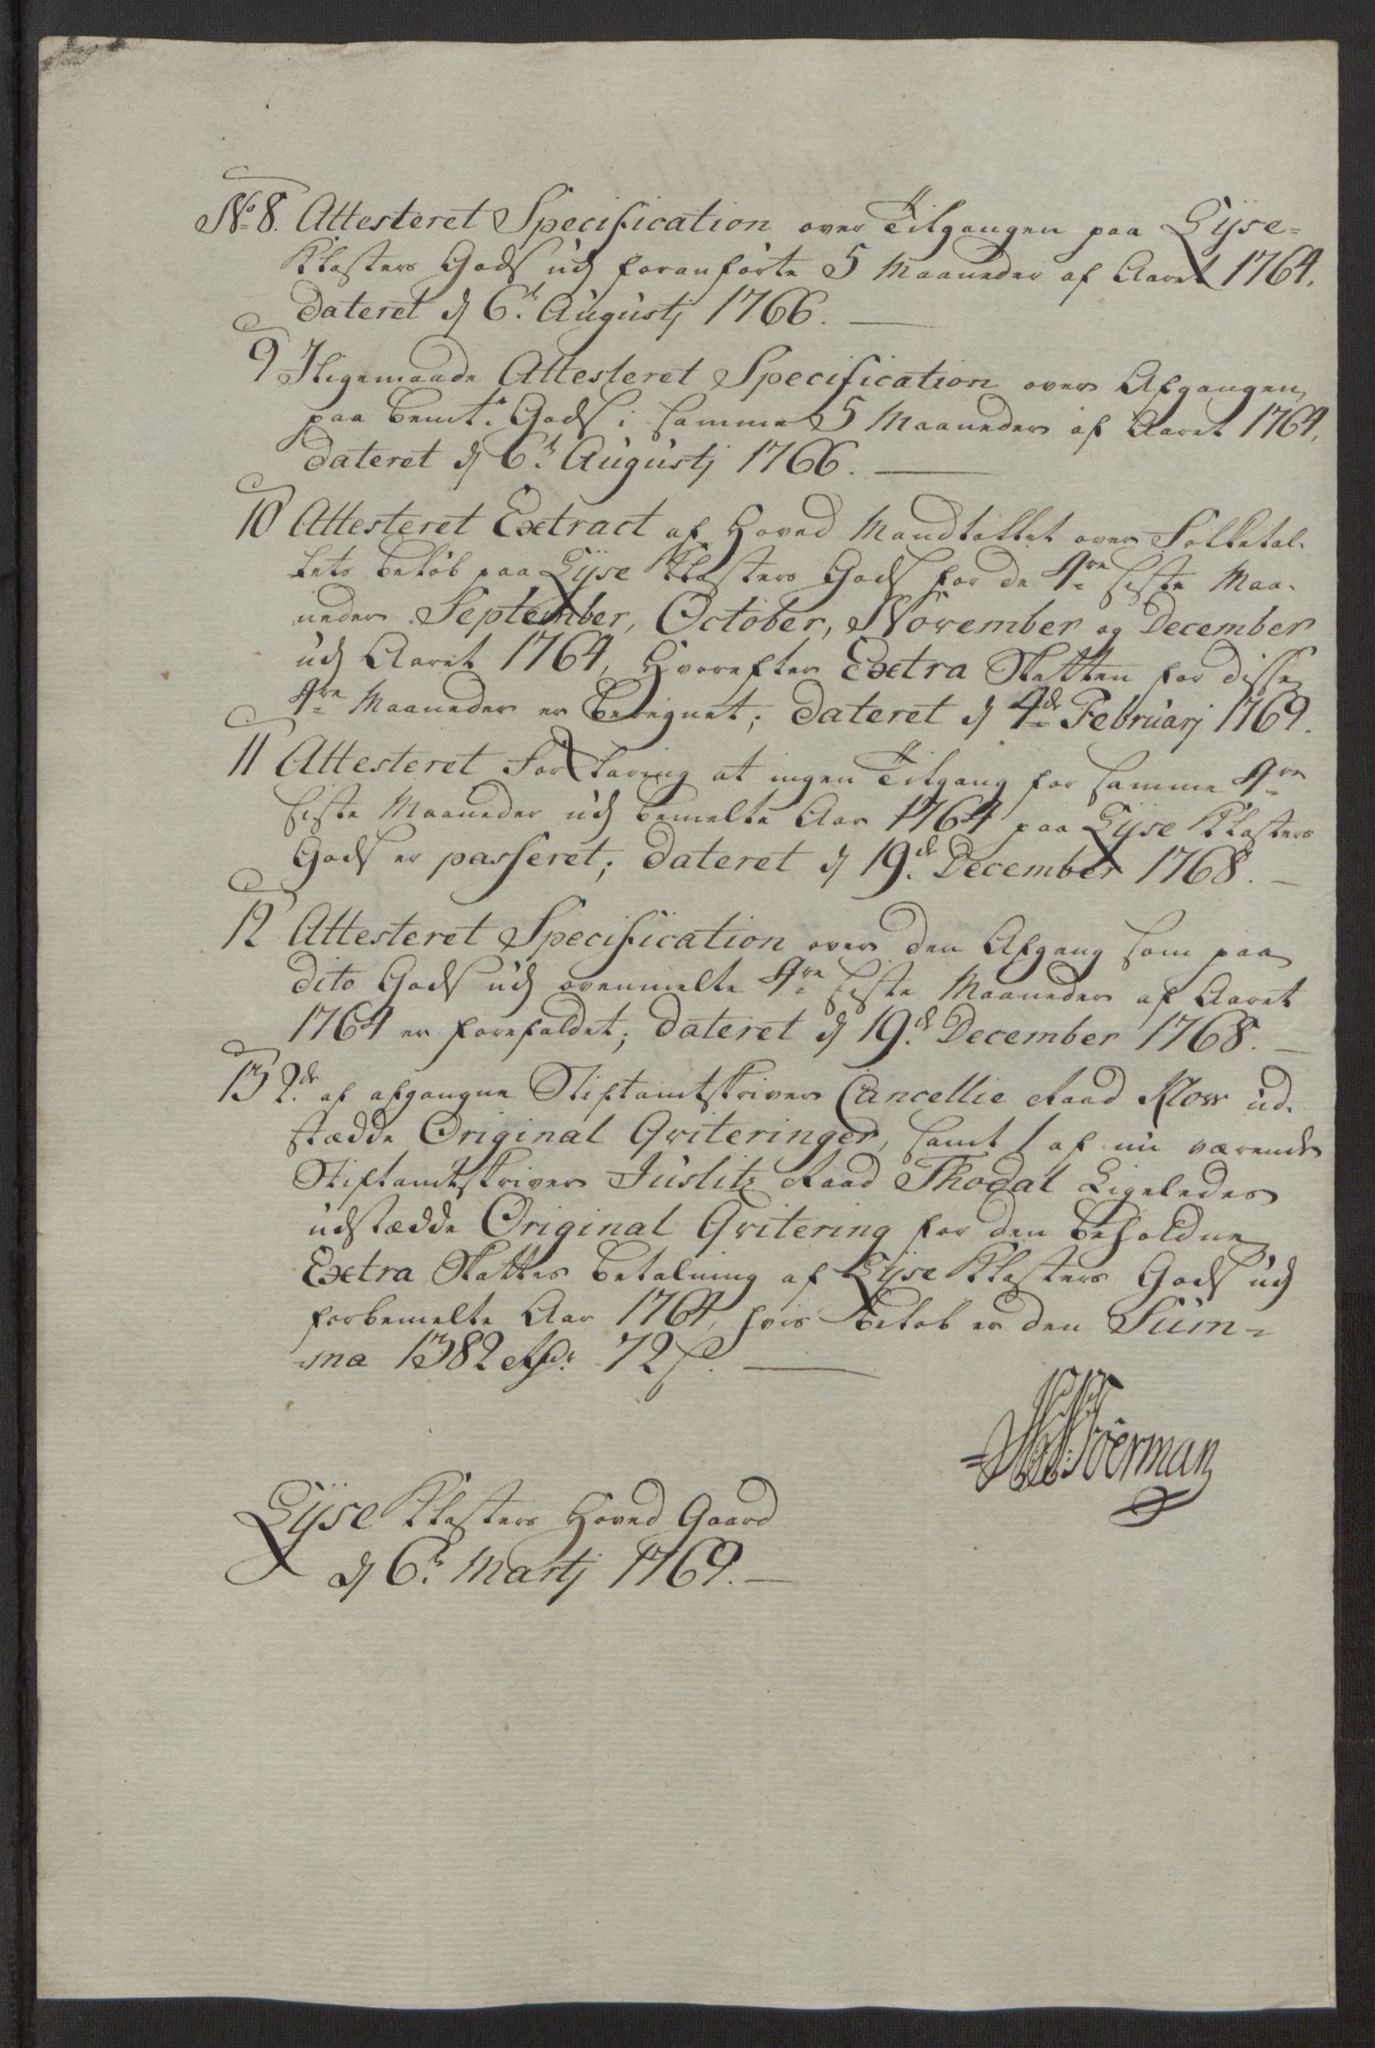 No 8. Attesteret Specification over Tilgangen paa Lÿse-
Klosters Gods udj foranførte 5 Maaneder af Aaret 1764.
dateret d. 6t Augustj 1766.
9 Iligemaade Attesteret Specification over Afgangen
paa bemte. Gods i samme 5 Maaneder af Aaret 1764,
dateret d. 6t Augustj 1766.
10 Attesteret Extract af Hoved Mandtallet over Folketal-
lets beløb paa Lÿse Klosters Gods for de 4re Siste Maa-
neder September, October, November og December
udj Aaret 1764, Hvorefter Extra Skatten for disse
4re Maaneder er beregnet; dateret d. 4de Februarj 1769.
11 Attesteret Forklaring at ingen Tilgang for samme 4re
siste Maaneder udj bemelte Aar 1764 paa Lÿse Klosters
Gods er passeret; dateret d. 19de December 1768.
12 Attesteret Specification over den Afgang som paa
dito Gods udj ovenmelte 4re Siste Maaneder af Aaret
1764 er forefaldet; dateret d. 19de December 1768.
13 2de af afgangne Stiftamtskriver Cancellie Raad Klow ud-
stædde Original Qviteringer, samt 1 af nu værende
Stiftamtskriver Justitz Raad Thodal Ligeledes
udstædde Original Qvitering for den beholdne
Extra Skattes betalning af Lÿse Klosters Gods udj
forbemelte Aar 1764, hvis beløb er den Sum-
-ma 1382 Rdr 72 s.
Formann
Lÿse Klosters Hoved Gaard
d. 6t Martj 1769.